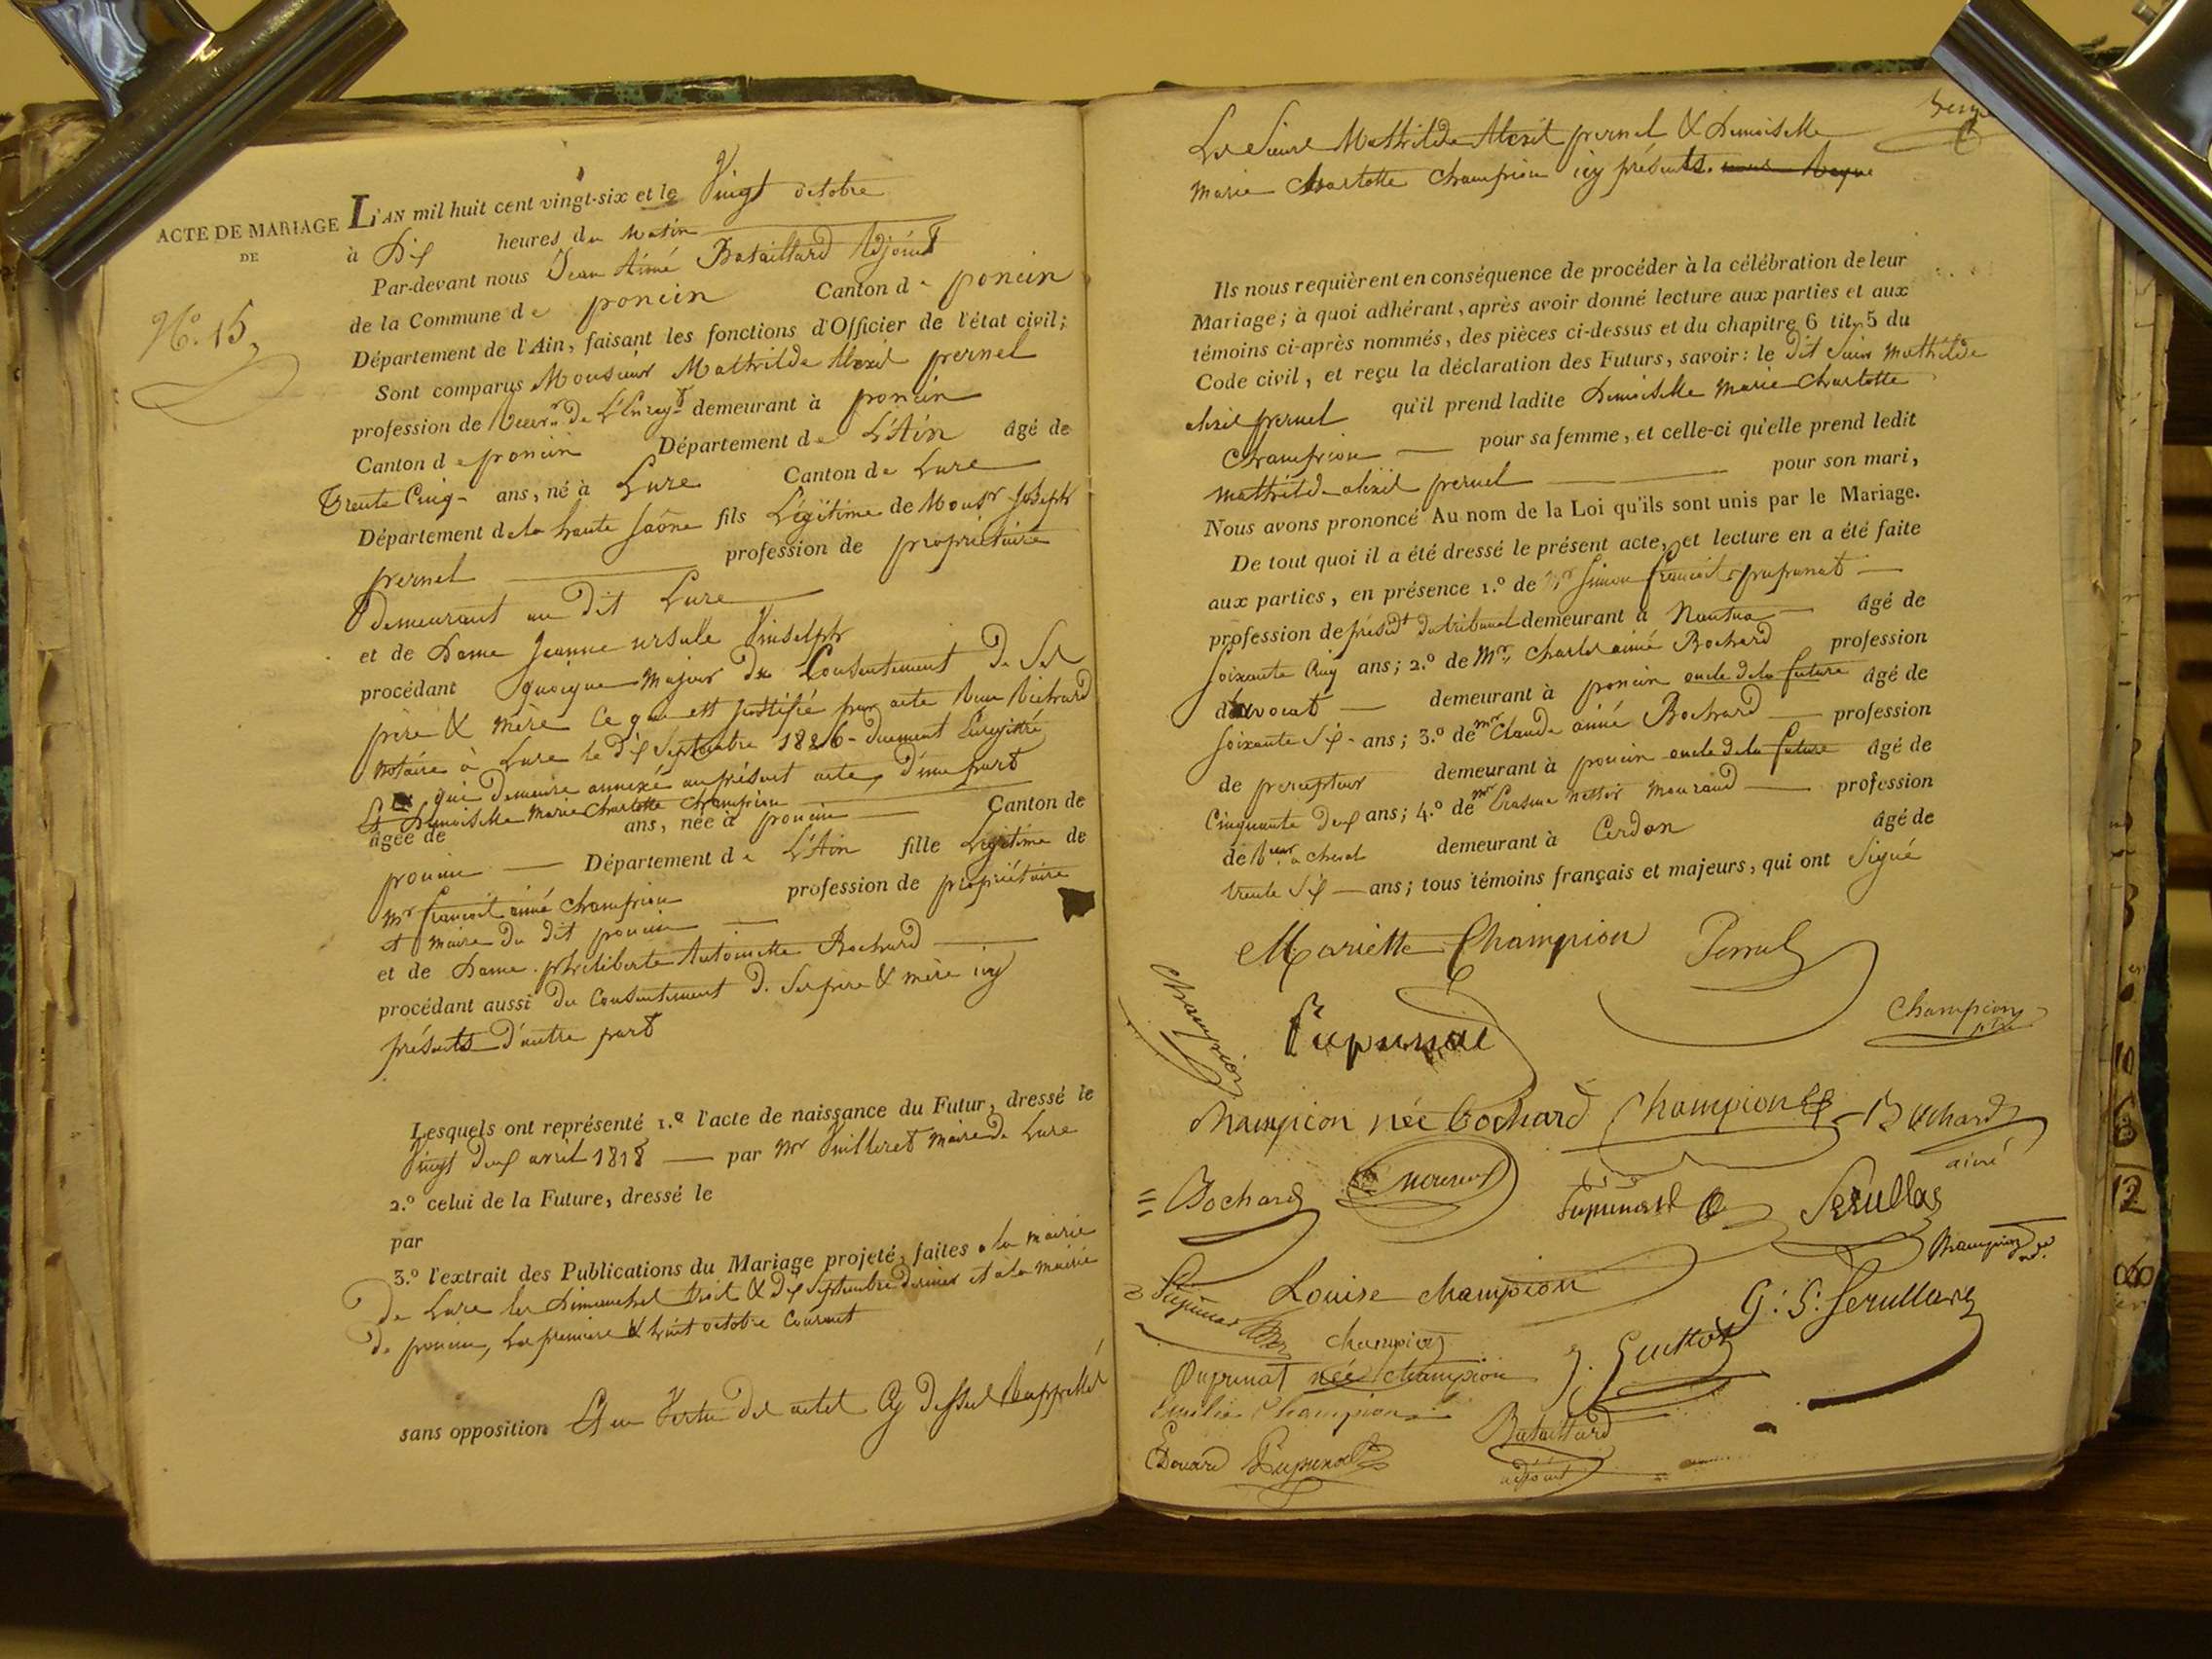 ACTE DE MARIAGE
DE
N.º 15
L'AN mil huit cent vingt-six et le Vingt octobre
à Dix heures du matin
Par-devant nous Jean Aimé Bataillard Adjoint
de la Commune de poncin Canton de poncin
Département de l'Ain, faisant les fonctions d'Officier de l'état civil;
Sont comparus Monsieur Mathilde Alexil pernel
profession de de L'Enreg.t demeurant à poncin
Canton de poncin Département de L'Ain âgé de
Trente Cinq ans, né à Lure Canton de Lure
Département de la haute Saône fils Légitime de Mons.r Joseph
pernel profession de propriétaire
demeurant au dit Lure
et de Dame Jeanne ursule
procédant quoique majeur du Consentement de Ses
père & mère Ce que est justifié par acte
notaire à Lure le dix Septembre 1826 duement Enregistré
qui demeure annexé au présent acte, d'une part
Et Demoiselle Marie Charlotte Champion
âgée de ans, née à poncin Canton de
poncin Département de L'Ain fille Légitime de
Mr françois aimé Champion profession de propriétaire
et maire du dit poncin
et de Dame philiberte Antoinette Bochard
procédant aussi du Consentement de Ses père & mère icy
présents d'autre part
Lesquels ont représenté 1.º l'acte de naissance du Futur, dressé le
Vingt deux avril 1818 par Mr Vuilleret Maire de Lure
2.º celui de la Future, dressé le
par
3.º l'extrait des Publications du Mariage projeté, faites à la mairie
de Lure les Dimanches trois & dix Septembre dernier et à la mairie
de poncin, les premier & huit octobre Courant
sans opposition Et en Vertu des actes Cy dessus Rappellés
Les Sieurs Mathilde Alexil pernel & Demoiselle
Marie Charlotte Champion icy présents.
Ils nous requièrent en conséquence de procéder à la célébration de leur
Mariage; à quoi adhérant, après avoir donné lecture aux parties et aux
témoins ci-après nommés, des pièces ci-dessus et du chapitre 6 tit. 5 du
Code civil, et reçu la déclaration des Futurs, savoir: le dit Sieur Mathilde
alexil pernel qu'il prend ladite Demoiselle Marie Charlotte
Champion pour sa femme, et celle-ci qu'elle prend ledit
Mathilde alexil pernel pour son mari,
Nous avons prononcé Au nom de la Loi qu'ils sont unis par le Mariage.
De tout quoi il a été dressé le présent acte, et lecture en a été faite
aux parties, en présence 1.º de Mr Simon françois pupunat
profession de présid.t du tribunal demeurant à Nantua âgé de
Soixante Cinq ans; 2.º de Mr Charles aimé Bochard profession
d'avocat demeurant à poncin oncle de la future âgé de
Soixante Six ans; 3.º de Mr Claude aimé Bochard profession
de percepteur demeurant à poncin oncle de la future âgé de
Cinquante deux ans; 4.º de Mr Erasme nestor mouraud profession
de à cheval demeurant à Cerdon âgé de
trente Six ans; tous témoins français et majeurs, qui ont Signé
Mariette Champion Pernel
Champion
Pupunat
Champion
Champion née bochard Champion Bochard
aimé
Bochard Pupunat Serullas
Champion
Pupunat Louise champion G. S. Serullas
champion J. Guittot
Pupunat née champion
Emilie Champion
Bataillard
Edouard Pupunat
adjoint